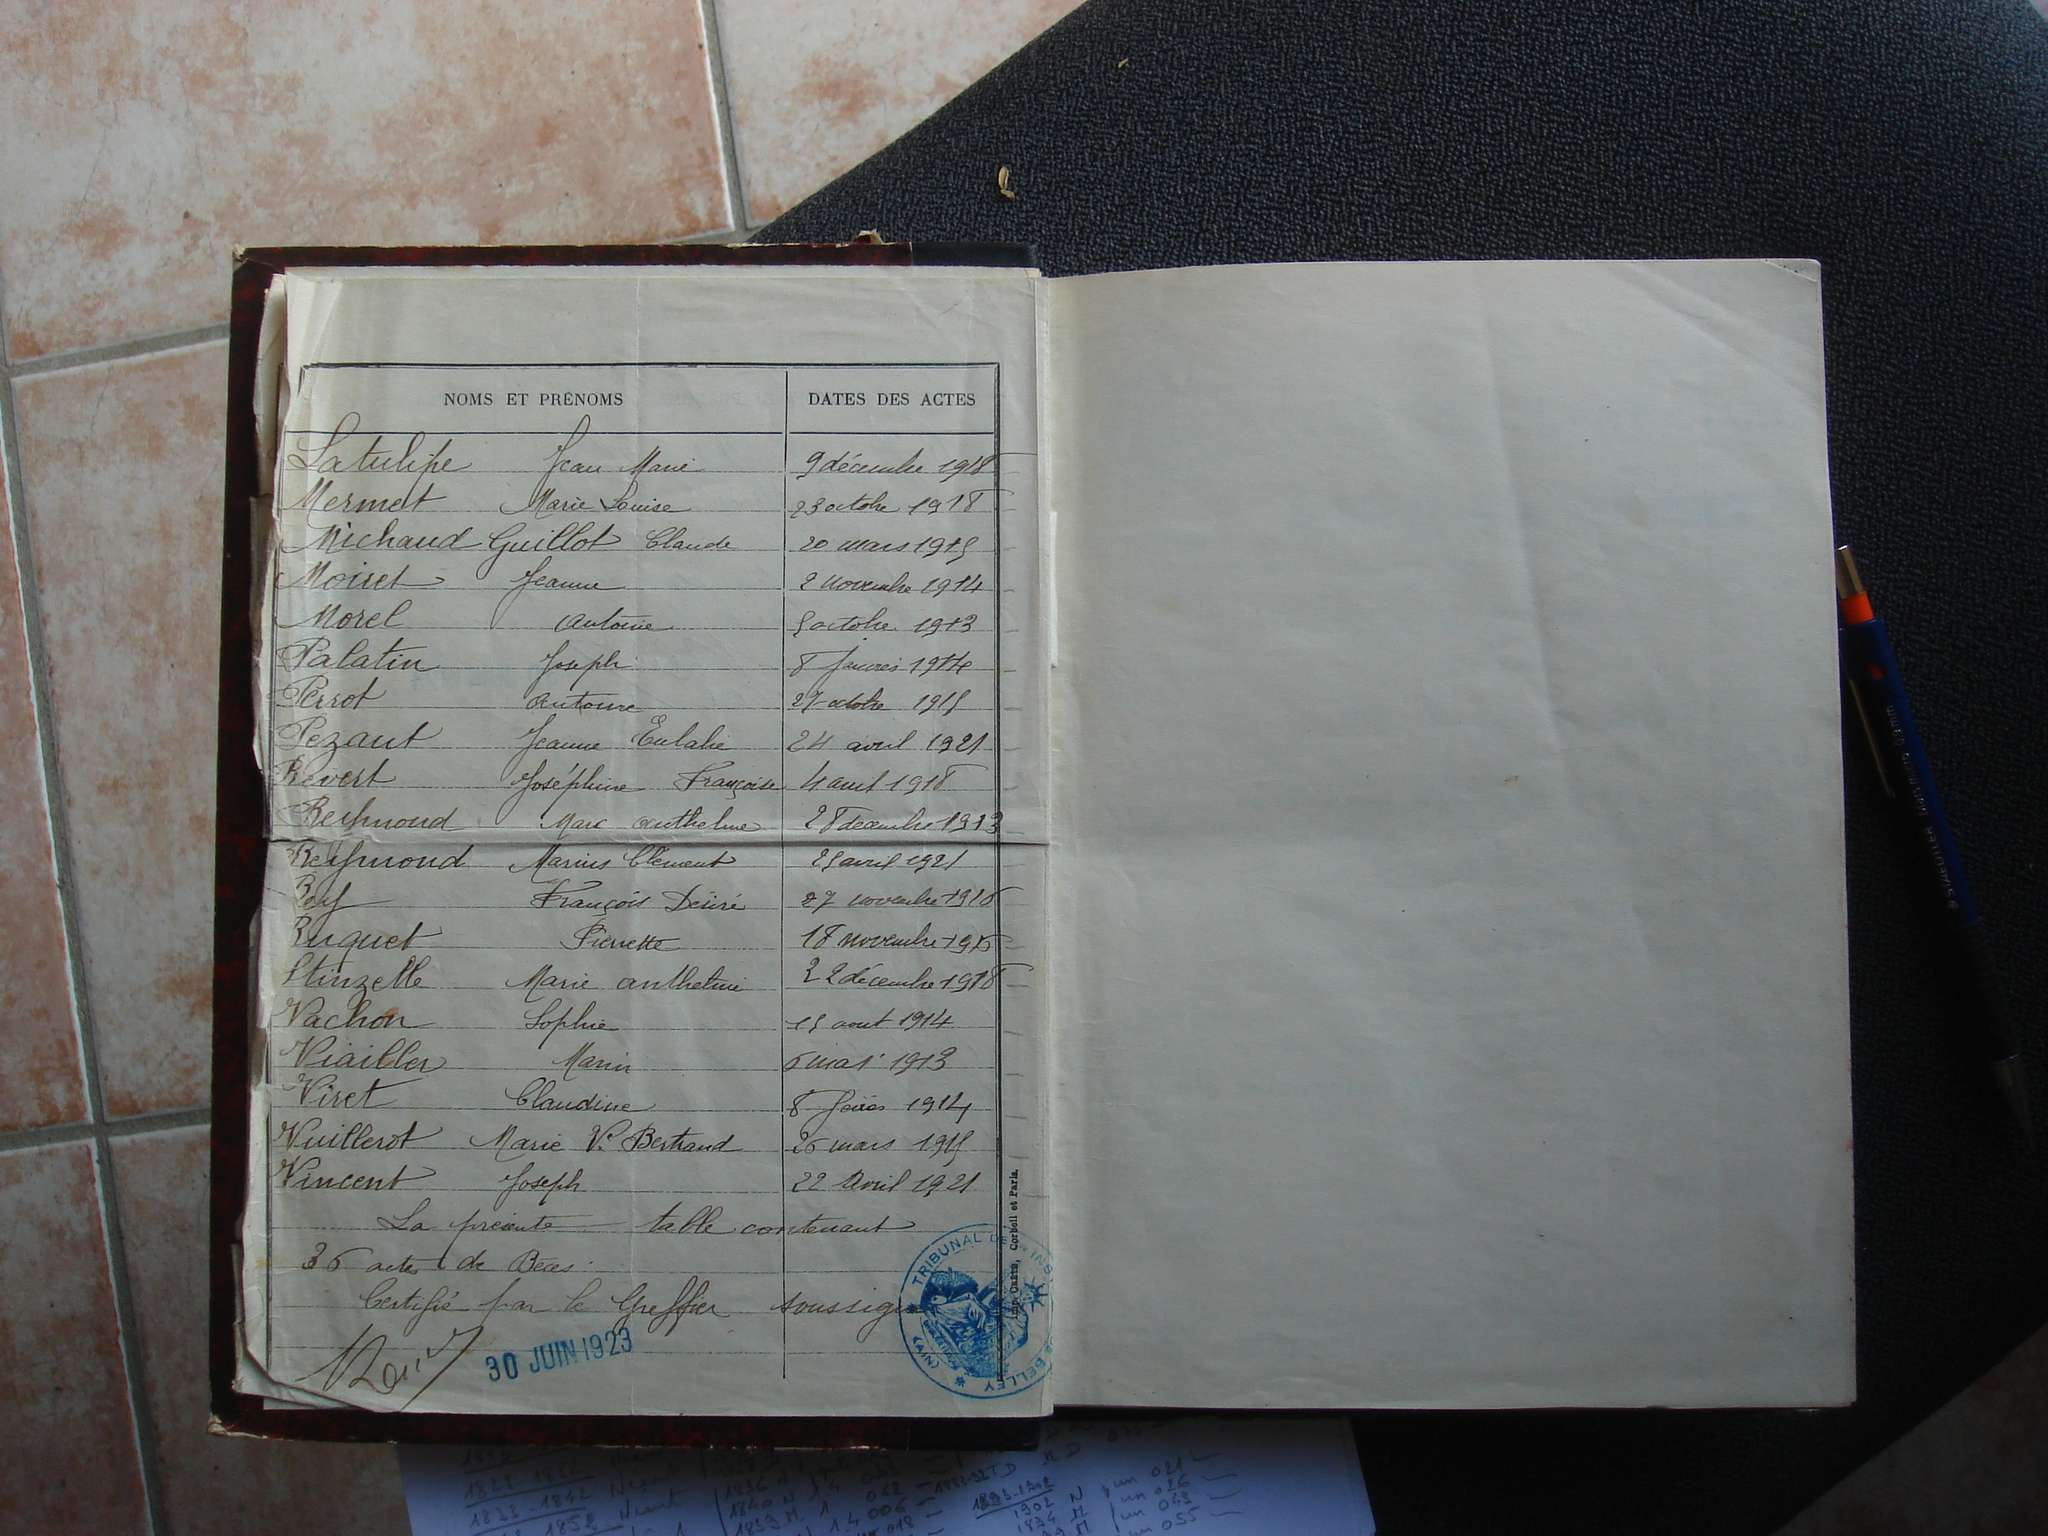 NOMS ET PRÉNOMS DATES DES ACTES
Latulipe Jean Marie 9 décembre 1918
Mermet Marie Louise 23 octobre 1918
Michaud Guillot Claude 20 mars 1915
Moiret Jeanne 2 novembre 1914
Morel Antoine 5 octobre 1913
Palatin Joseph 8 1914
Perrot Antoine 27 octobre 1915
Pezant Jeanne Eulalie 24 avril 1921
Revert Joséphine Françoise 4 1918
Reymond Marc Anthelme 28 décembre 1913
Reymond Marius Clément 25 avril 1921
Rey François Désiré 27 novembre
Ruguet Pierrette 18 novembre
Stinzelle Marie Anthelmie 22 décembre 1918
Vachon Sophie 15 aout 1914
Viailler Marin 6 mai 1913
Viret Claudine 8 1914
Vuillerot Marie Ve Bertrand 26 mars 1915
Vincent Joseph 22 Avril 1921
La présente table contenant
36 actes de Décès.
Certifié par le Greffier soussigné
30 JUIN 1923
TRIBUNAL DE INST BELLEY (AIN)
Corbeil et Paris.